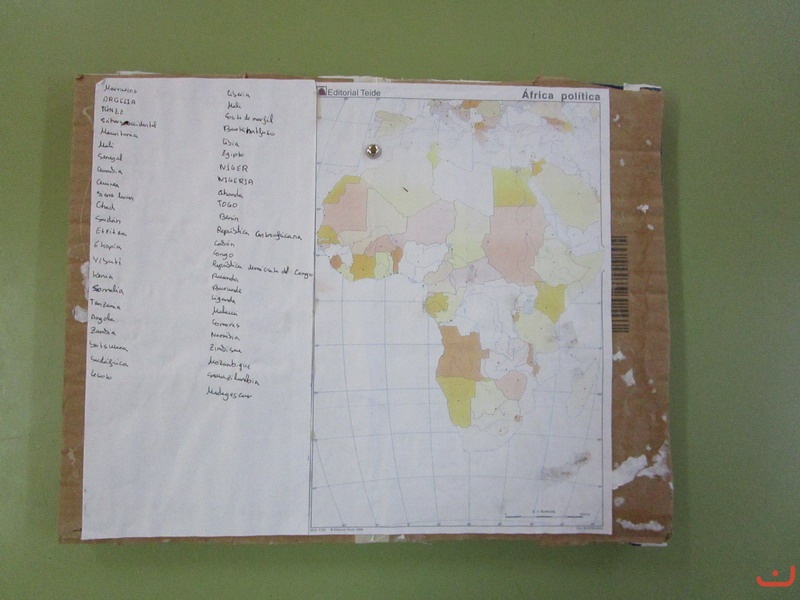 Marruecos
ARGELIA
TÚNEZ
Sáhara occidental
Mauritania
Mali
Senegal
Gambia
Guinea
Sierra Leona
Chad
Sudán
Eritrea
Etiopía
Yibuti
Kenia
Somalia
Tanzania
Angola
Zambia
botsuana
Sudáfrica
Lesoto
Liberia
Mali
Costa de marfil
Libia
Egipto
NIGER
NIGERIA
Ghanda
TOGO
Benin
República Centroafricana
Gabón
Congo
República democrata del Congo
Ruanda
Burundi
Uganda
Malaui
Comores
Namibia
Mozambique
Madagascar
Editorial Teide
África política